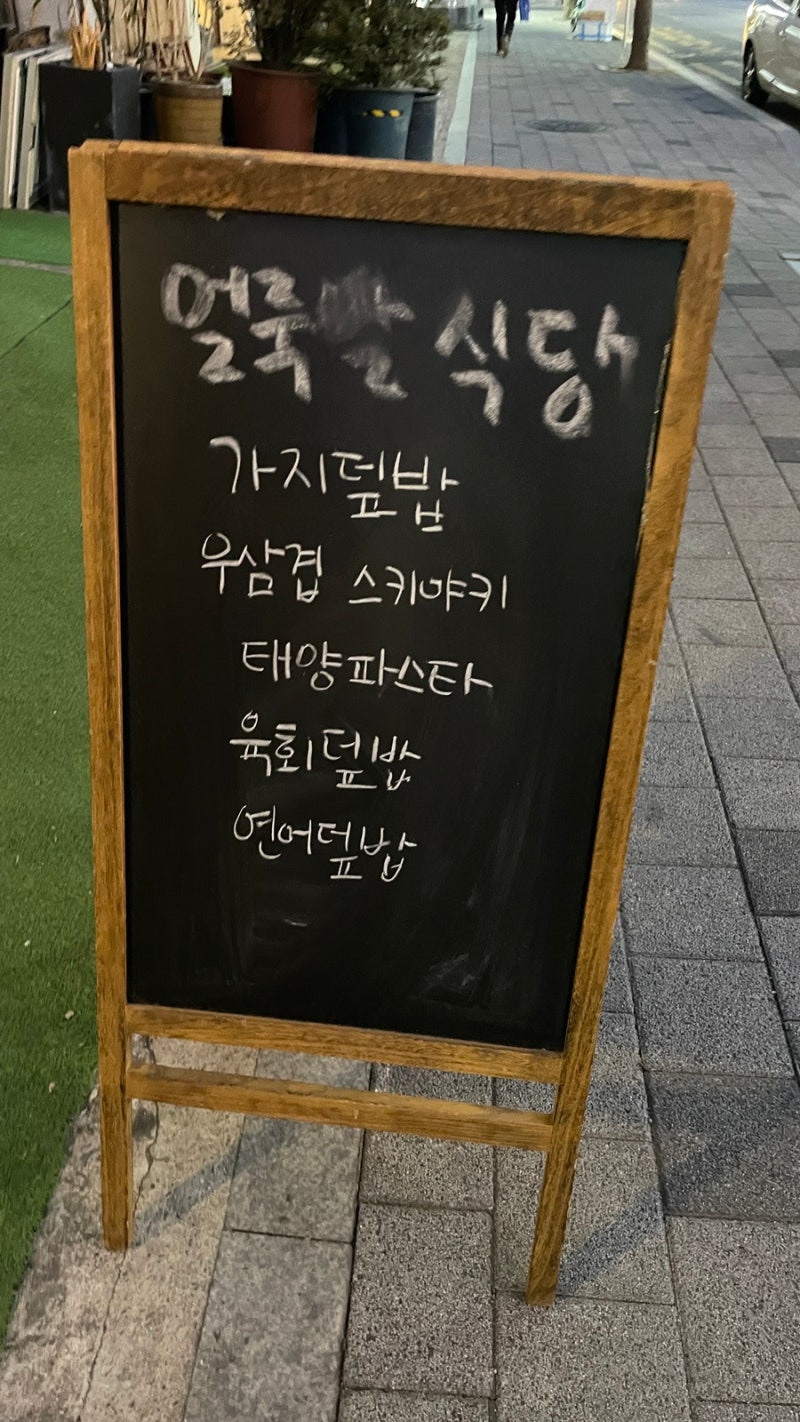 얼룩말 식당
가지덮밥
우삼겹 스키야키
태양파스타
육회덮밥
연어덮밥